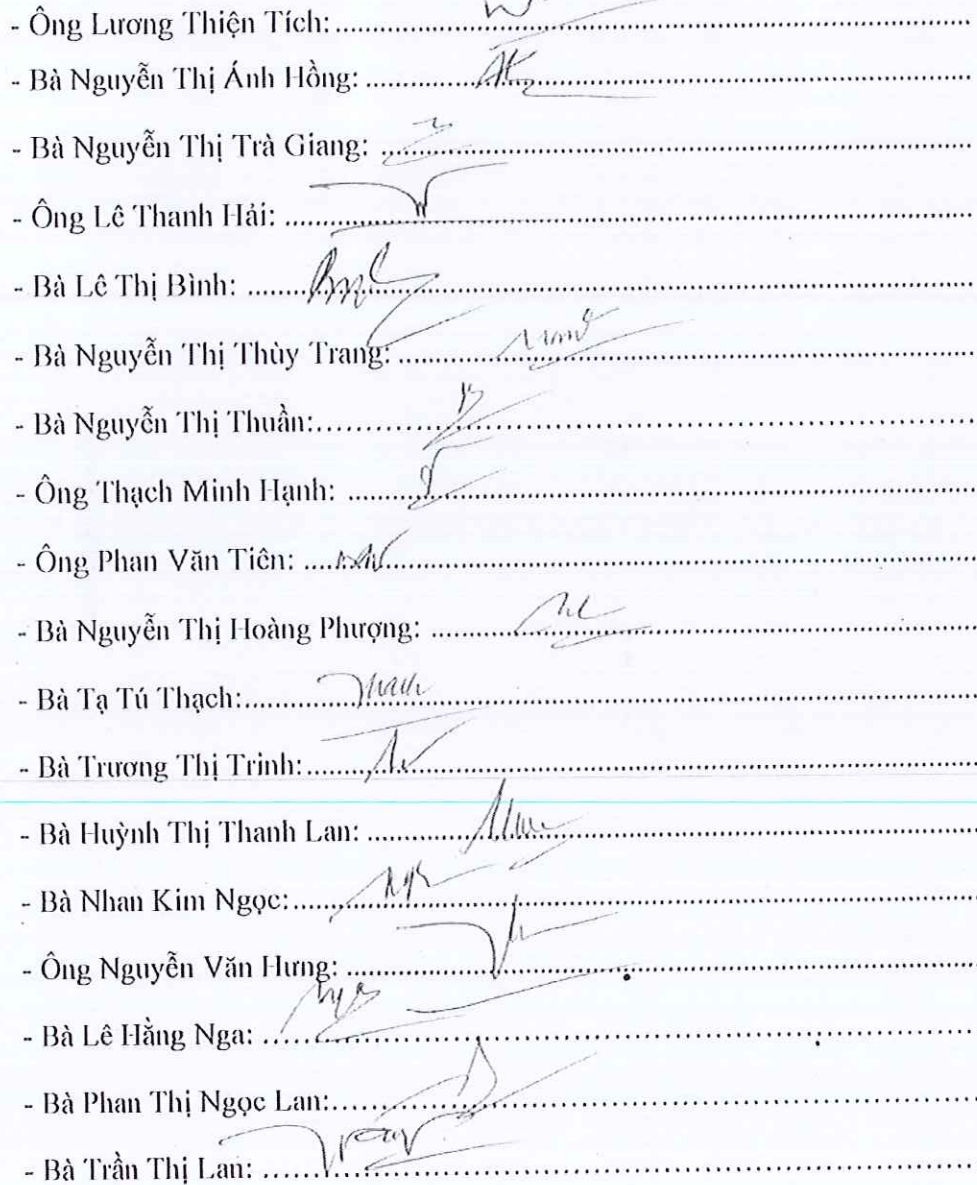 - Ông Lương Thiện Tích:
- Bà Nguyễn Thị Ánh Hồng:
- Bà Nguyễn Thị Trà Giang:
- Ông Lê Thanh Hải:
- Bà Lê Thị Bình:
- Bà Nguyễn Thị Thùy Trang:
- Bà Nguyễn Thị Thuần:
- Ông Thạch Minh Hạnh:
- Ông Phan Văn Tiên:
- Bà Nguyễn Thị Hoàng Phượng:
- Bà Tạ Tú Thạch:
- Bà Trương Thị Trinh:
- Bà Huỳnh Thị Thanh Lan:
- Bà Nhan Kim Ngọc:
- Ông Nguyễn Văn Hưng:
- Bà Lê Hằng Nga:
- Bà Phan Thị Ngọc Lan:
- Bà Trần Thị Lan: